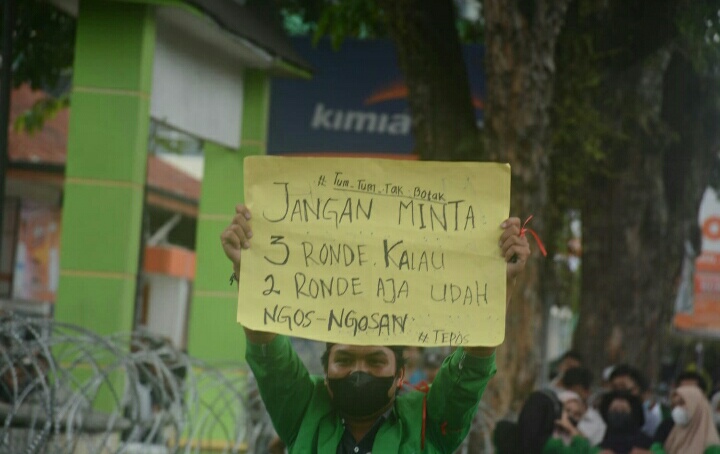 kimia
#. Tum. Tum. Tak. Botak
JANGAN MINTA
3 RONDE. KALAU
2 RONDE AJA UDAH
NGOS-NGOSAN.
#. TEPOS